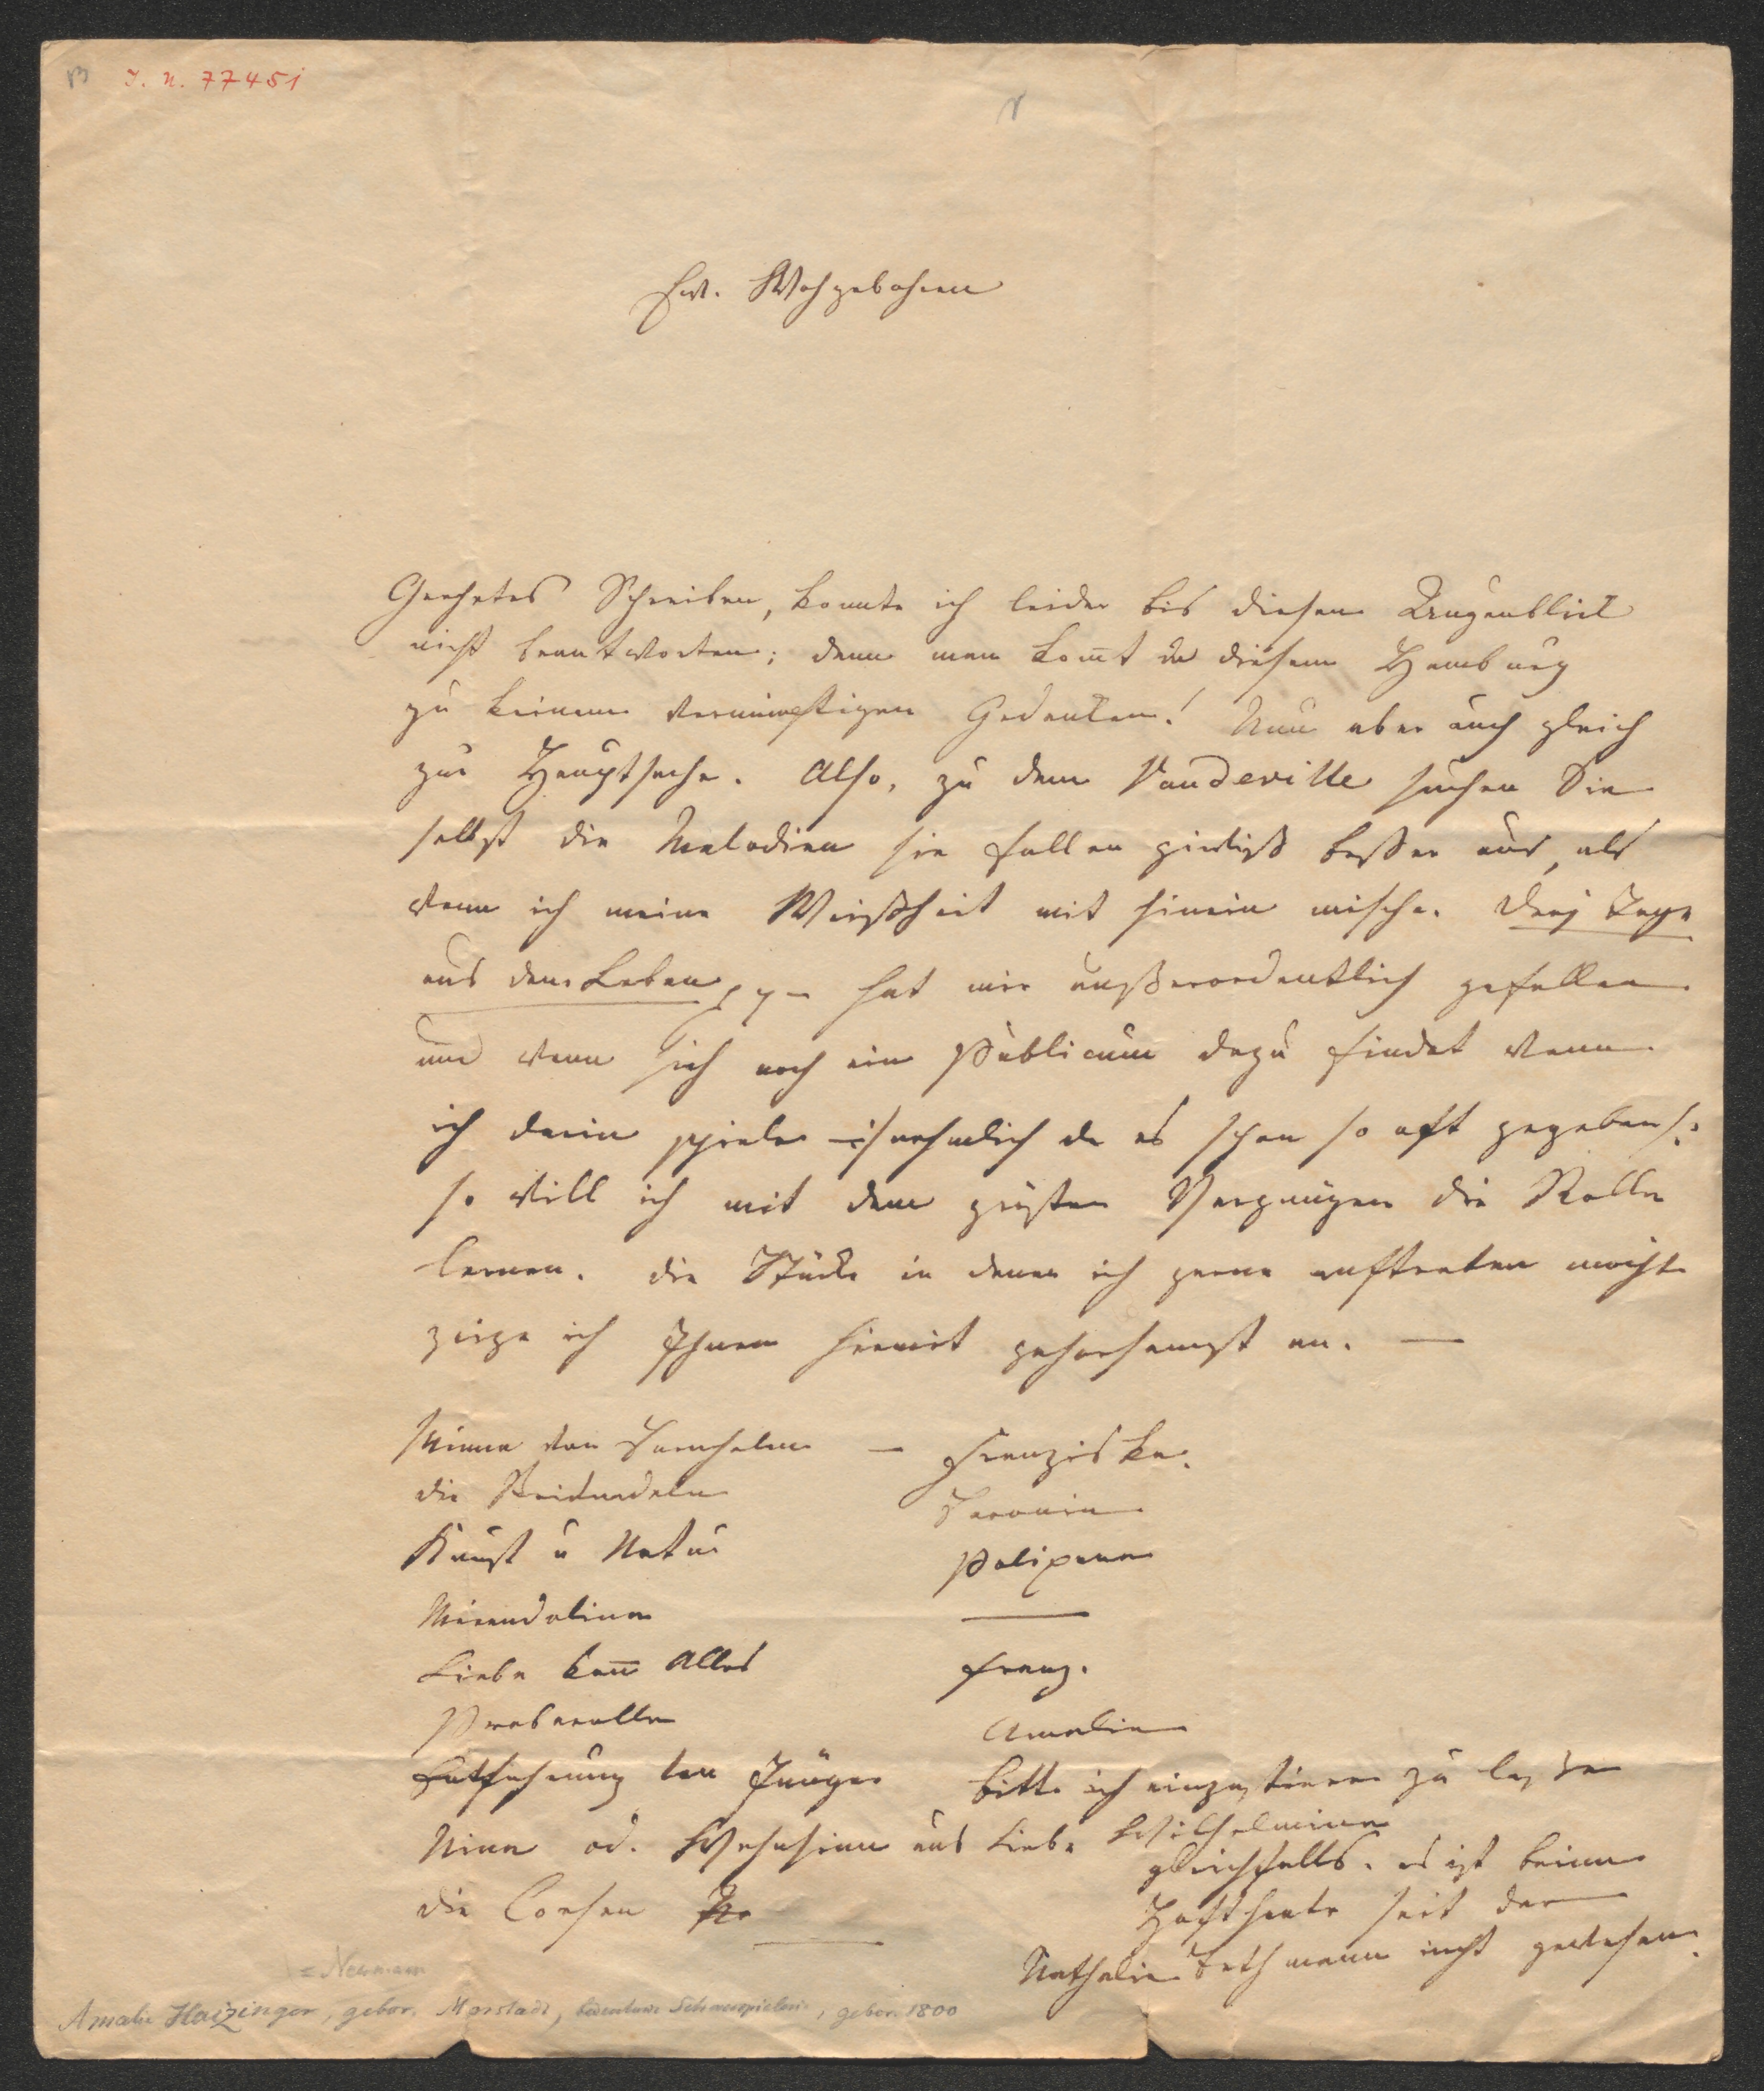 J. N. 77451
Ew. Wohgebohren
Geehrtes Schreiben, konnte ich leider bis diesen Augenblick
nicht beantworten; denn man kom̄t in diesem Hamburg
zu keinem vernünftigen Gedanken! Nun aber auch gleich
zur Hauptsache. Also, zu dem Vaudeville suchen Sie
selbst die Melodien sie fallen gewiß beßer aus, als
wenn ich meine Weißheit mit hinein mische. Drej Tage
aus dem Leben hat mir außerordentlich gefallen
und wenn sich noch ein Publicum dazu findet wenn
ich darin spiele nehmlich da es schon so oft gegeben
so will ich mit dem grösten Vergnügen die Rolle
lernen. die Stücke in denen ich gerne auftreten mögte
zeige ich Ihnen hiemit gehorsamst an. —
Minna von Barnhelm — Franziska.
die Baronin
Kunst u Natur Polixena
Mirandolina —
Liebe kan̄ Alles Franz.
Proberolle Amalie
Entführung von Jünger bitte ich einzustudieren zu lassen
Nina od. Wahnsinn aus Liebe Wilhelmine
gleichfalls. es ist beim
die Corsen
Hoftheater seit der
Nathalie Bethmann nicht gewesen.
= Neumann
Amalie Haizinger, gebor. Morstadt, bedeutende Schauspielerin, gebor. 1800